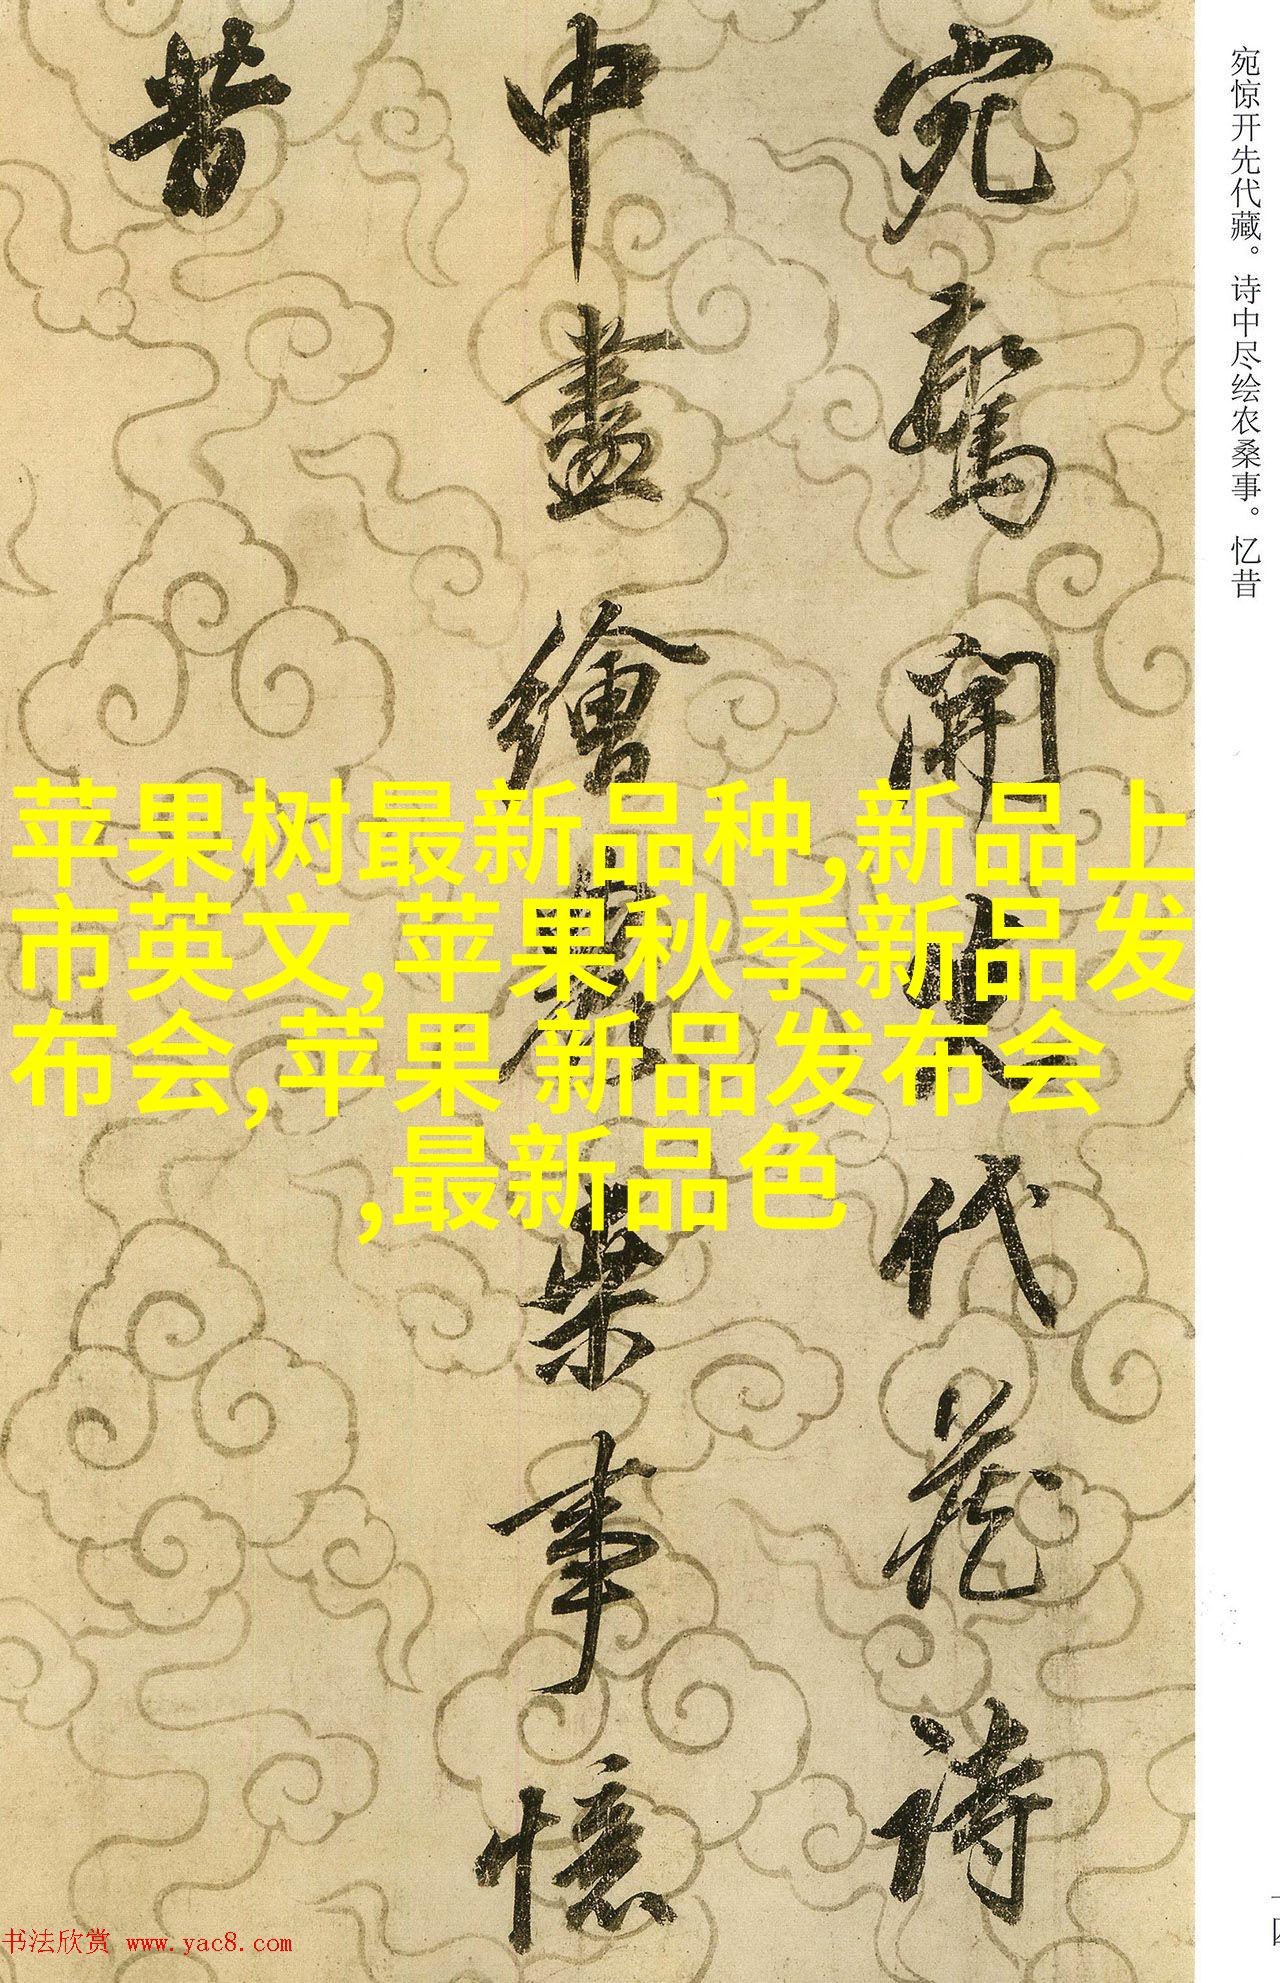 宛驚開先代藏詩
中盡繪農桒事憶
昔
宛惊开先代藏。诗中尽绘农桑事。忆昔
苹果树最新品种,新品上
市英文,苹果秋季新品发
布会,苹果 新品发布会
,最新品色
书法欣赏 www.yac8.com